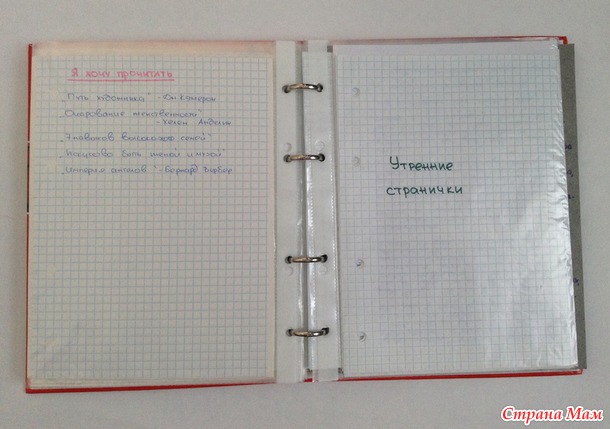 Я хочу прочитать
„Путь художника" - Джулия Кэмерон
„Очарование женственности"
- Хелен Анделин
„7 навыков высокоэфф. семей"
„Искусство быть женой и музой"
„Империя ангелов" - Бернард Вербер
Утренние
странички
Страна Мам